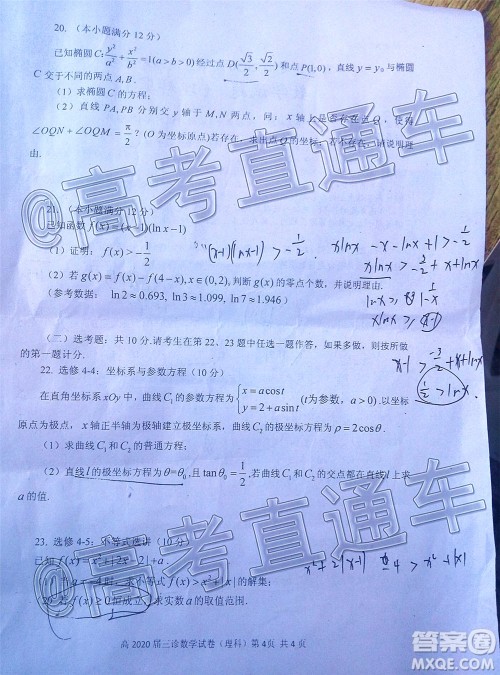 20. (本小题满分12分)
已知椭圆 C: y²/a² + x²/b² = 1(a > b > 0) 经过点 D(√3/2, √2/2) 和点 P(1,0), 直线 y = y₀ 与椭圆
C 交于不同的两点 A, B.
(1) 求椭圆 C 的方程;
(2) 直线 PA, PB 分别交 y 轴于 M, N 两点, 问: x 轴上是否存在点 Q, 使得
∠OQN + ∠OQM = π/2? (O 为坐标原点) 若存在, 求出点 Q 的坐标, 若不存在, 请说明理
由.
21. (本小题满分12分)
已知函数 f(x) = (x-1)(ln x - 1)
(1) 证明: f(x) > -1/2
(x-1)(lnx-1) > -1/2
xlnx - x - lnx + 1 > -1/2
xlnx > -3/2 + x + lnx
(2) 若 g(x) = f(x) - f(4-x), x∈(0,2), 判断 g(x) 的零点个数, 并说明理由.
(参考数据: ln 2 ≈ 0.693, ln 3 ≈ 1.099, ln 7 ≈ 1.946)
x-1 > -3/2 + x + lnx
1/2 > lnx
(二) 选考题: 共10分. 请考生在第22、23题中任选一题作答, 如果多做, 则按所做
的第一题计分.
22. 选修 4-4: 坐标系与参数方程 (10分)
在直角坐标系 xOy 中, 曲线 C₁ 的参数方程为 { x = a cos t
y = 2 + a sin t (t 为参数, a > 0). 以坐标
原点为极点, x 轴正半轴为极轴建立极坐标系, 曲线 C₂ 的极坐标方程为 ρ = 2cosθ.
(1) 求曲线 C₁ 和 C₂ 的普通方程;
(2) 直线 l 的极坐标方程为 θ = θ₀, 且 tanθ₀ = 1/2, 若曲线 C₁ 和 C₂ 的交点都在直线 l 上求
a 的值.
23. 选修 4-5: 不等式选讲 (10分)
已知 f(x) = x² + |2x - 2| + a.
时, 求不等式 f(x) > x² + |x| 的解集;
若 f(x) ≥ 0 恒成立, 求实数 a 的取值范围.
高 2020 届三诊数学试卷 (理科) 第4页 共4页
@高考直通车
@高考直通车
答案圈
MXQE.COM